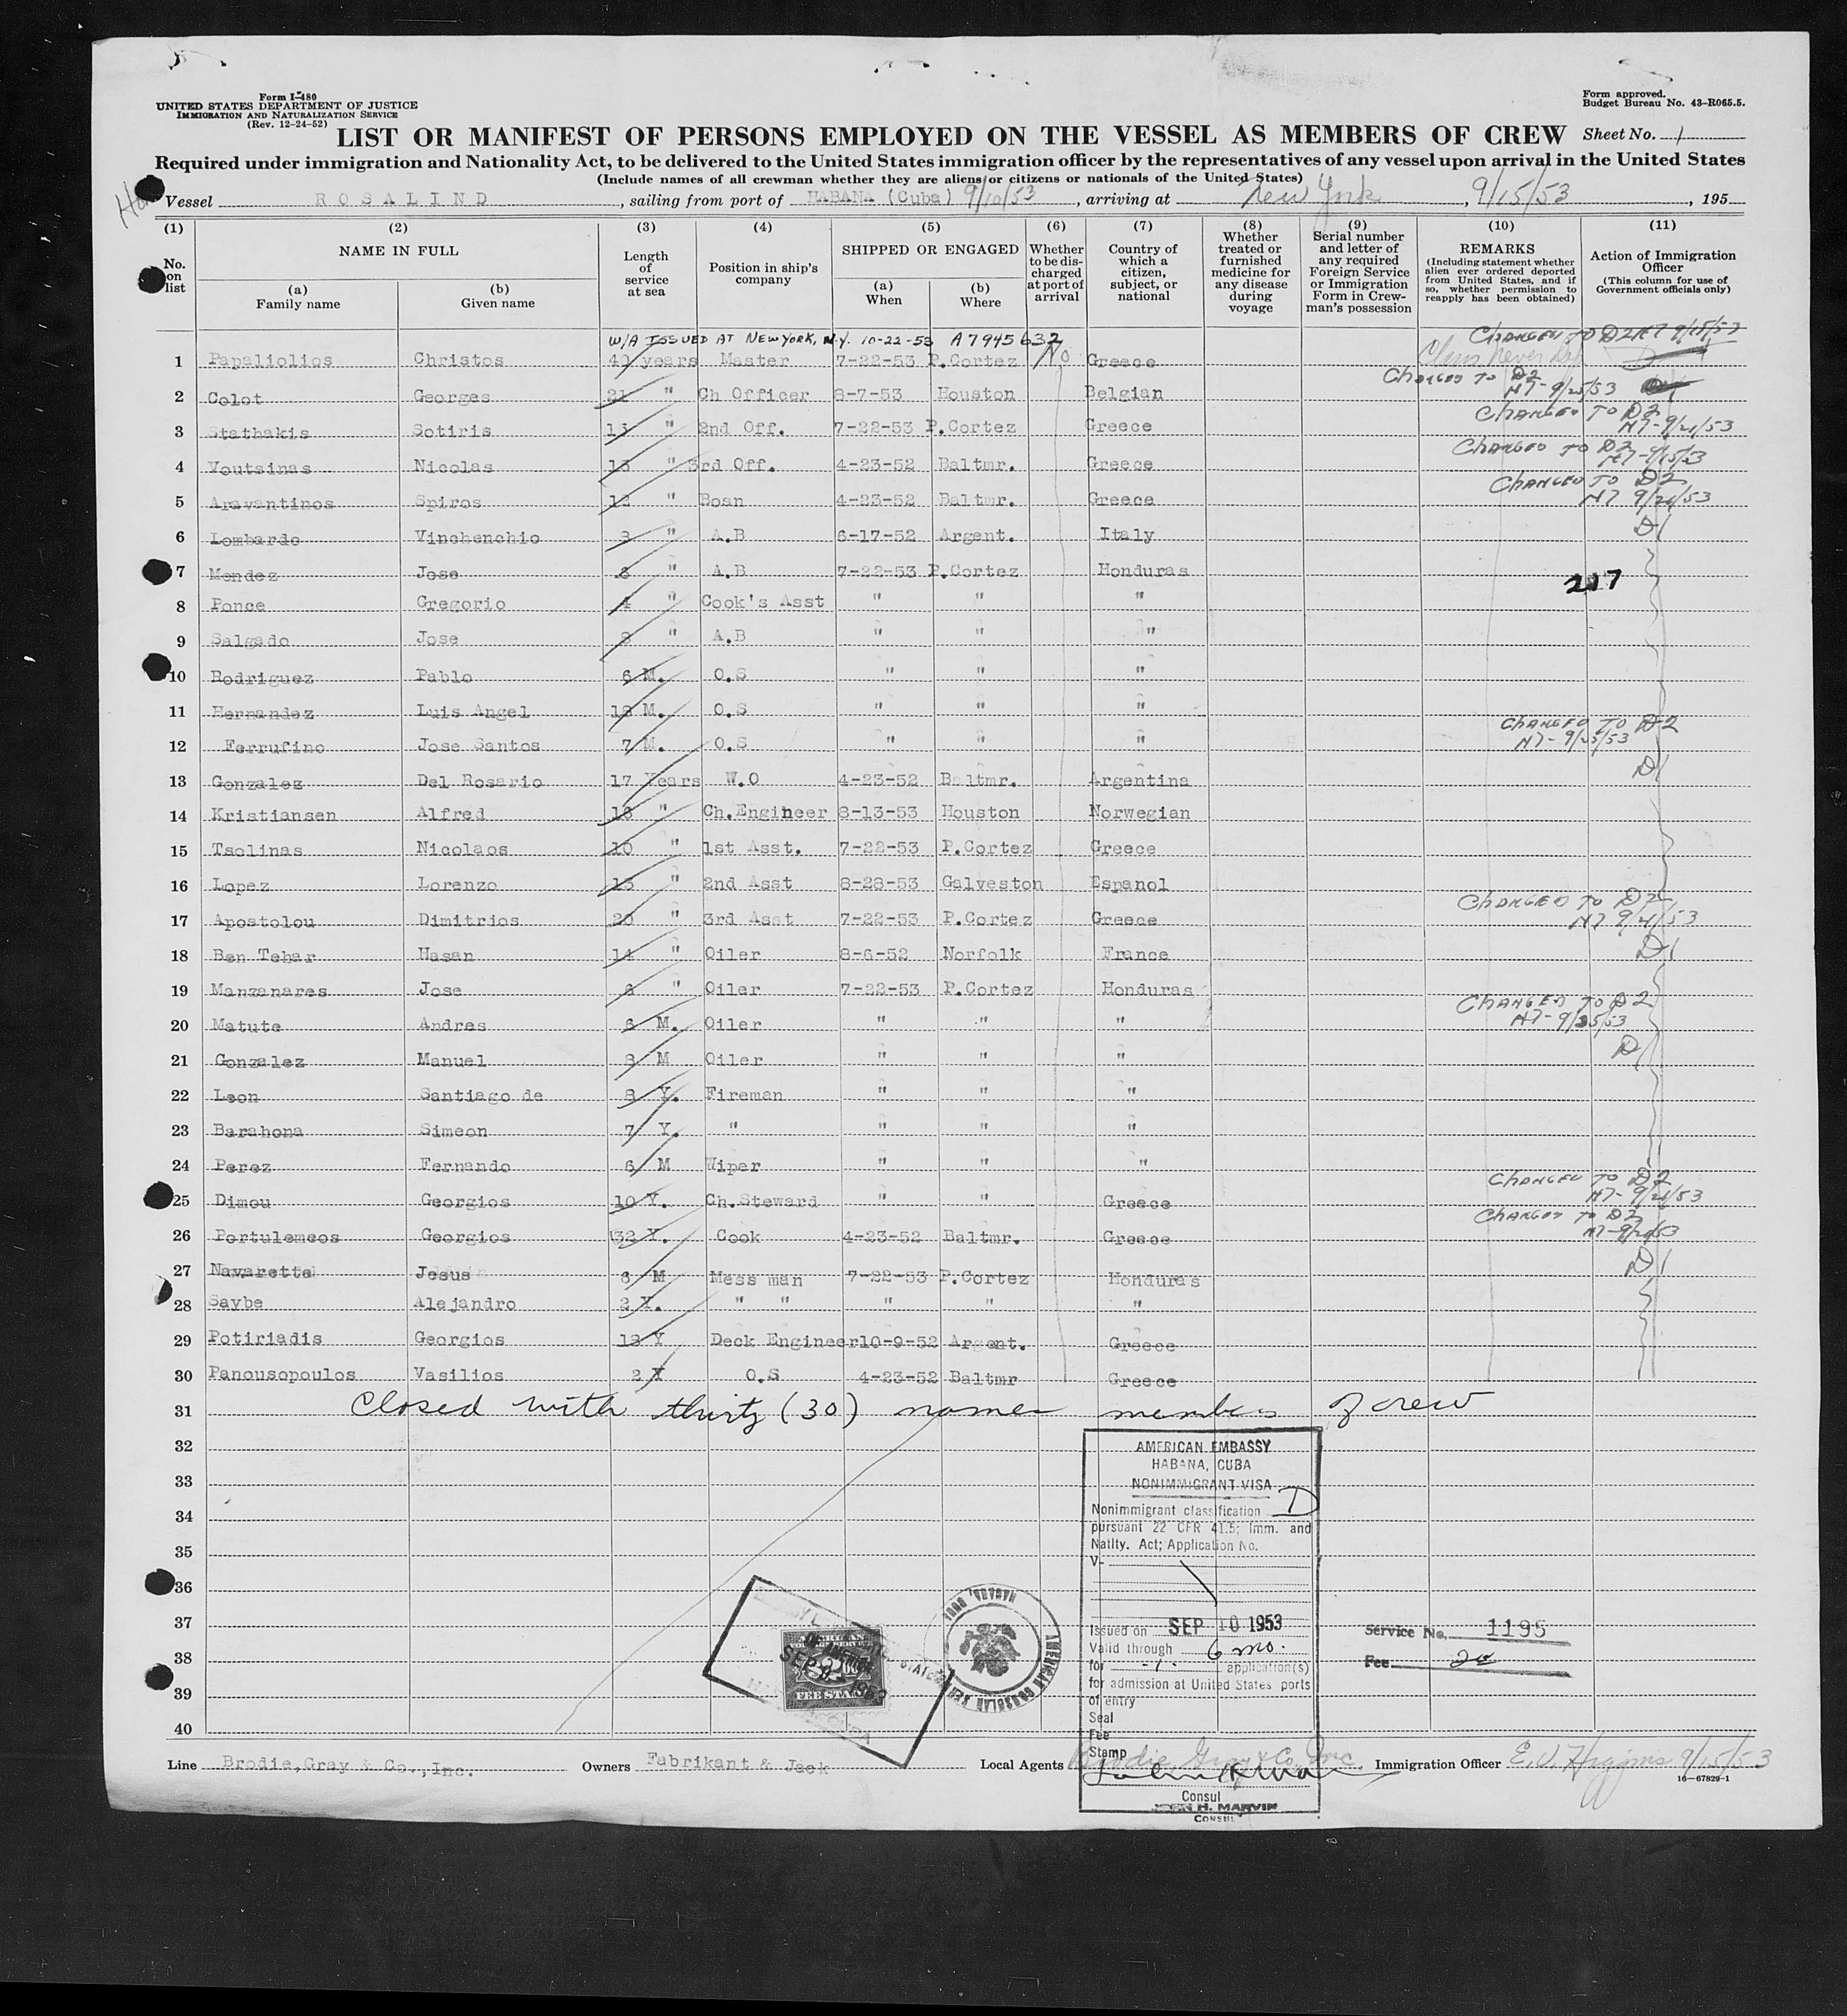 Form I-480
UNITED STATES DEPARTMENT OF JUSTICE
IMMIGRATION AND NATURALIZATION SERVICE
(Rev. 12-24-52)
Form approved.
Budget Bureau No. 43-R065.5.
LIST OR MANIFEST OF PERSONS EMPLOYED ON THE VESSEL AS MEMBERS OF CREW Sheet No. 1
Required under immigration and Nationality Act, to be delivered to the United States immigration officer by the representatives of any vessel upon arrival in the United States
(Include names of all crewman whether they are aliens or citizens or nationals of the United States)
Vessel ROSALIND, sailing from port of HABANA (Cuba) 9/10/53, arriving at New York, 9/15/53, 195
(1) (2) (3) (4) (5) (6) (7) (8) (9) (10) (11)
No. on list
NAME IN FULL
(a) Family name
(b) Given name
Length of service at sea
Position in ship's company
SHIPPED OR ENGAGED
(a) When
(b) Where
Whether to be discharged at port of arrival
Country of which a citizen, subject, or national
Whether treated or furnished medicine for any disease during voyage
Serial number and letter of any required Foreign Service or Immigration Form in Crewman's possession
REMARKS
(Including statement whether alien ever ordered deported from United States, and if so, whether permission to reapply has been obtained)
Action of Immigration Officer
(This column for use of Government officials only)
W/A ISSUED AT NEW YORK, N.Y. 10-22-53 A7945632 CHANGED TO D2 H7 9/15/53
1 Papaliolios Christos 40 years Master 7-22-53 P.Cortez No Greece
CHANGED TO D2
2 Colot Georges 21 " Ch Officer 8-7-53 Houston Belgian H7-9/25/53
CHANGED TO D2
3 Stathakis Sotiris 15 " 2nd Off. 7-22-53 P.Cortez Greece H7-9/21/53
CHANGED TO D2
4 Voutsinas Nicolas 15 " 3rd Off. 4-23-52 Baltmr. Greece H7-9/15/53
CHANGED TO D2
5 Aravantinos Spiros 12 " Bosn 4-23-52 Baltmr. Greece H7 9/21/53
6 Lombardo Vinchenchio 3 " A.B 6-17-52 Argent. Italy D1
7 Mendez Jose 8 " A.B 7-22-53 P.Cortez Honduras
217
8 Ponce Gregorio 4 " Cook's Asst " " "
9 Salgado Jose 8 " A.B " " "
10 Rodriguez Pablo 6 M. O.S " " "
11 Hernandez Luis Angel 18 M. O.S " " "
CHANGED TO D2
12 Ferrufino Jose Santos 7 M. O.S " " " H7-9/25/53
13 Gonzalez Del Rosario 17 Years W.O 4-23-52 Baltmr. Argentina D1
14 Kristiansen Alfred 18 " Ch.Engineer 8-13-53 Houston Norwegian
15 Tsolinas Nicolaos 10 " 1st Asst. 7-22-53 P.Cortez Greece
16 Lopez Lorenzo 15 " 2nd Asst 8-28-53 Galveston Espanol
CHANGED TO D2
17 Apostolou Dimitrios 20 " 3rd Asst 7-22-53 P.Cortez Greece H7 9/21/53
18 Ben Tehar Hasan 14 " Oiler 8-6-52 Norfolk France D1
19 Manzanares Jose 6 " Oiler 7-22-53 P.Cortez Honduras
CHANGED TO D2
20 Matute Andres 6 M. Oiler " " " H7-9/25/53
21 Gonzalez Manuel 8 M Oiler " " " D1
22 Leon Santiago de 8 Y. Fireman " " "
23 Barahona Simeon 7 Y. " " " "
24 Perez Fernando 6 M Wiper " " "
CHANGED TO D2
25 Dimou Georgios 10 Y. Ch.Steward " " Greece H7-9/21/53
CHANGED TO D2
26 Portulemeos Georgios 32 Y. Cook 4-23-52 Baltmr. Greece
27 Navarette Jesus 6 M Mess man 7-22-53 P.Cortez Honduras D1
28 Saybe Alejandro 2 Y. " " " " "
29 Potiriadis Georgios 12 Y Deck Engineer 10-9-52 Argent. Greece
30 Panousopoulos Vasilios 2 Y O.S 4-23-52 Baltmr Greece
31 Closed with thirty (30) names members of crew
32
33
34
35
36
37
38
39
40
AMERICAN EMBASSY
HABANA, CUBA
NONIMMIGRANT VISA
Nonimmigrant classification D
pursuant 22 CFR 41.5; Imm. and
Natlty. Act; Application No.
V-
Issued on SEP 10 1953
Valid through 6 mo.
for -1- application(s)
for admission at United States ports
of entry
Seal
Fee
Stamp
Consul
JOHN H. MARVIN
CONSUL
AMERICAN CONSULAR
HABANA, CUBA
FEE STAMP
Service No. 1195
Fee
Line Brodie, Gray & Co., Inc. Owners Fabrikant & Jack Local Agents Brodie, Gray & Co, Inc. Immigration Officer E.V. Higgins 9/15/53
16-67829-1